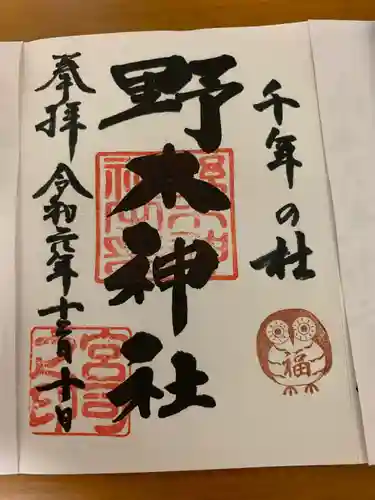 千年の杜
福
野木神社
奉拝
令和元年十二月十日
宮司